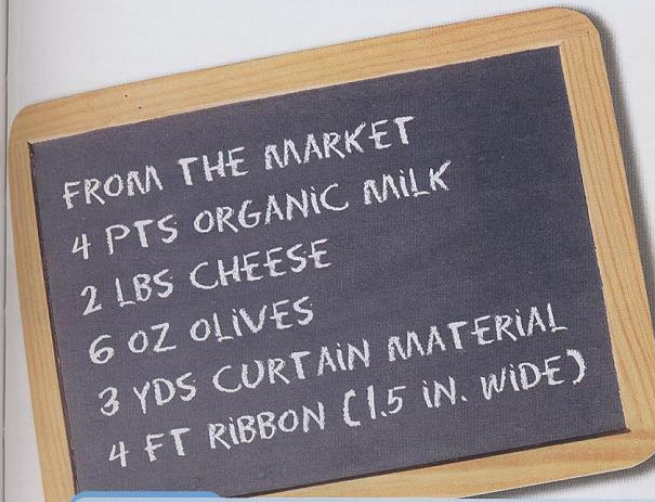 FROM THE MARKET
4 PTS ORGANiC MiLK
2 LBS CHEESE
6 OZ OLiVES
3 YDS CURTAiN MATERiAL
4 FT RiBBON (1.5 iN. WiDE)